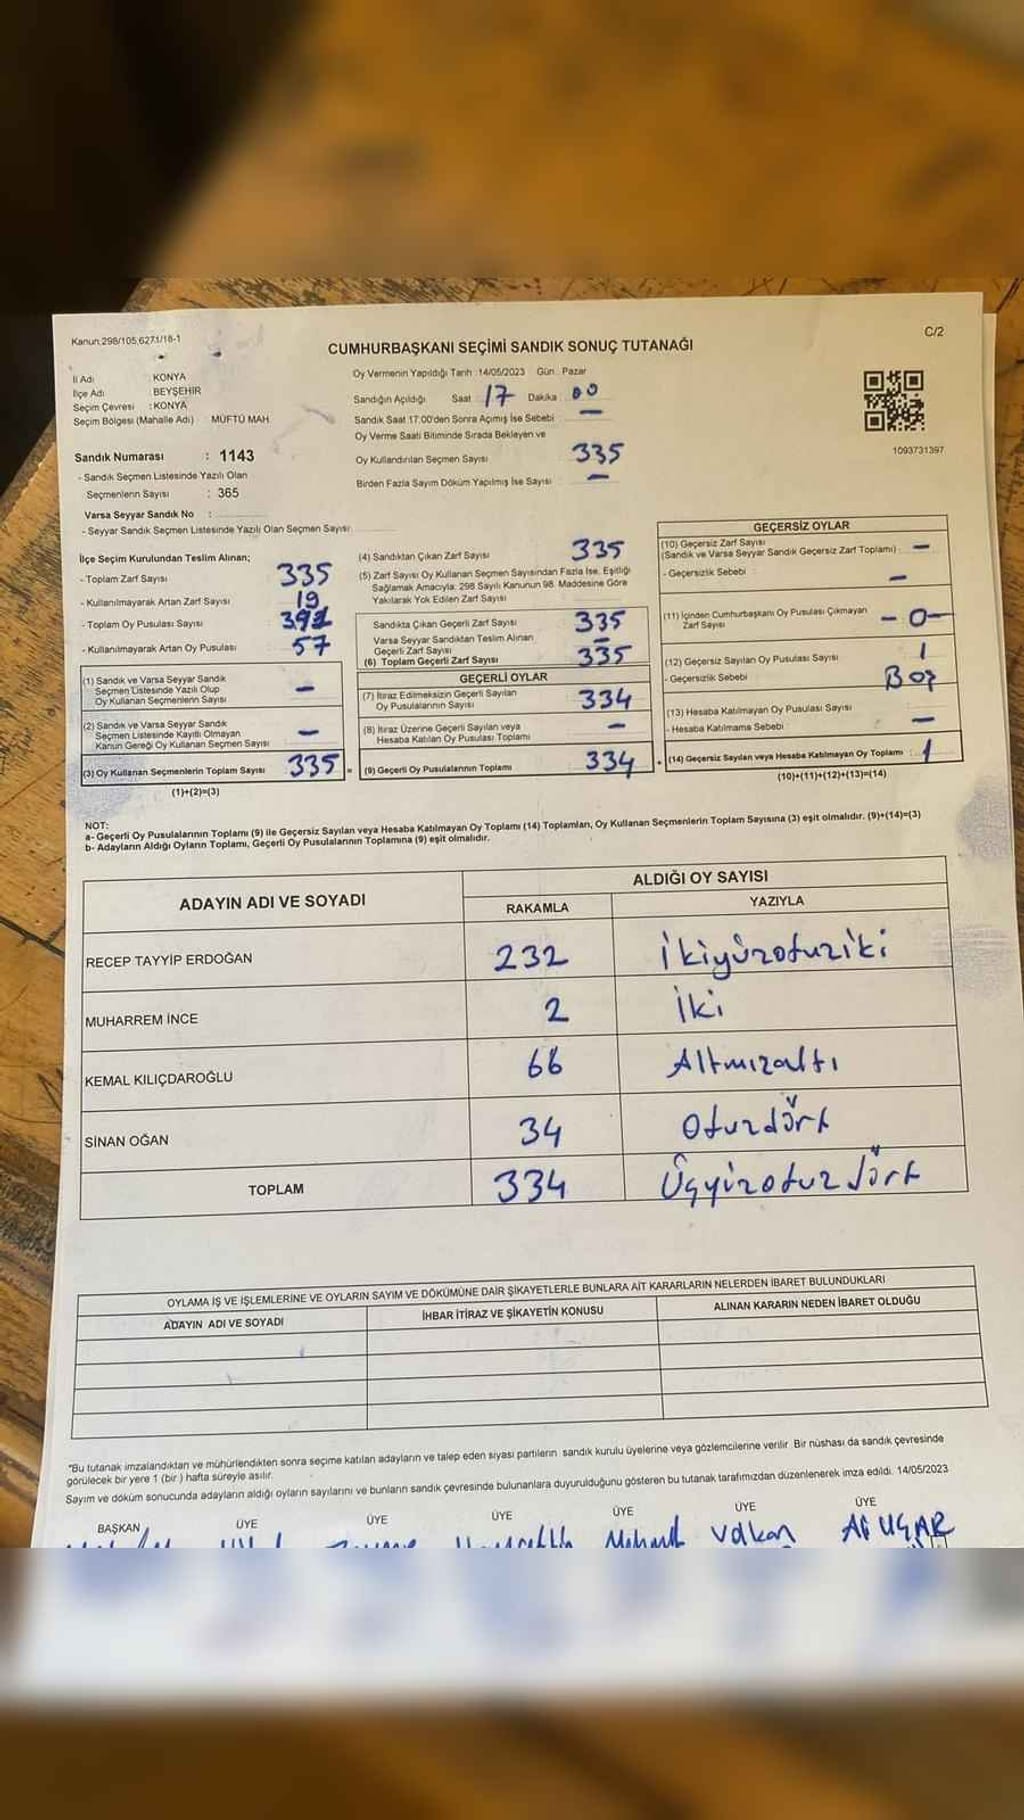 Kanun,298/105,627.1/18-1
C/2
CUMHURBAŞKANI SEÇİMİ SANDIK SONUÇ TUTANAĞI
İl Adı : KONYA
İlçe Adı : BEYŞEHİR
Seçim Çevresi : KONYA
Seçim Bölgesi (Mahalle Adı) : MÜFTÜ MAH
Sandık Numarası : 1143
- Sandık Seçmen Listesinde Yazılı Olan
Seçmenlerin Sayısı : 365
Varsa Seyyar Sandık No :
- Seyyar Sandık Seçmen Listesinde Yazılı Olan Seçmen Sayısı:
Oy Vermenin Yapıldığı Tarih : 14/05/2023 Gün : Pazar
Sandığın Açıldığı Saat 17 Dakika 00
Sandık Saat 17:00'den Sonra Açılmış İse Sebebi : —
Oy Verme Saati Bitiminde Sırada Bekleyen ve
Oy Kullandırılan Seçmen Sayısı 335
Birden Fazla Sayım Döküm Yapılmış İse Sayısı : —
1093731397
İlçe Seçim Kurulundan Teslim Alınan;
- Toplam Zarf Sayısı 335
- Kullanılmayarak Artan Zarf Sayısı 19
- Toplam Oy Pusulası Sayısı 392
- Kullanılmayarak Artan Oy Pusulası 57
(1) Sandık ve Varsa Seyyar Sandık
Seçmen Listesinde Yazılı Olup
Oy Kullanan Seçmenlerin Sayısı —
(2) Sandık ve Varsa Seyyar Sandık
Seçmen Listesinde Kayıtlı Olmayan
Kanun Gereği Oy Kullanan Seçmen Sayısı —
(3) Oy Kullanan Seçmenlerin Toplam Sayısı 335 =
(1)+(2)=(3)
(4) Sandıktan Çıkan Zarf Sayısı 335
(5) Zarf Sayısı Oy Kullanan Seçmen Sayısından Fazla İse, Eşitliği
Sağlamak Amacıyla; 298 Sayılı Kanunun 98. Maddesine Göre
Yakılarak Yok Edilen Zarf Sayısı
Sandıkta Çıkan Geçerli Zarf Sayısı 335
Varsa Seyyar Sandıktan Teslim Alınan
Geçerli Zarf Sayısı —
(6) Toplam Geçerli Zarf Sayısı 335
GEÇERLİ OYLAR
(7) İtiraz Edilmeksizin Geçerli Sayılan
Oy Pusulalarının Sayısı 334
(8) İtiraz Üzerine Geçerli Sayılan veya
Hesaba Katılan Oy Pusulası Toplamı —
(9) Geçerli Oy Pusulalarının Toplamı 334 +
GEÇERSİZ OYLAR
(10) Geçersiz Zarf Sayısı
(Sandık ve Varsa Seyyar Sandık Geçersiz Zarf Toplamı) : —
- Geçersizlik Sebebi : —
(11) İçinden Cumhurbaşkanı Oy Pusulası Çıkmayan
Zarf Sayısı - 0 -
(12) Geçersiz Sayılan Oy Pusulası Sayısı 1
- Geçersizlik Sebebi Boş
(13) Hesaba Katılmayan Oy Pusulası Sayısı
- Hesaba Katılmama Sebebi —
(14) Geçersiz Sayılan veya Hesaba Katılmayan Oy Toplamı : 1
(10)+(11)+(12)+(13)=(14)
NOT:
a- Geçerli Oy Pusulalarının Toplamı (9) ile Geçersiz Sayılan veya Hesaba Katılmayan Oy Toplamı (14) Toplamları, Oy Kullanan Seçmenlerin Toplam Sayısına (3) eşit olmalıdır. (9)+(14)=(3)
b- Adayların Aldığı Oyların Toplamı, Geçerli Oy Pusulalarının Toplamına (9) eşit olmalıdır.
ADAYIN ADI VE SOYADI
ALDIĞI OY SAYISI
RAKAMLA YAZIYLA
RECEP TAYYİP ERDOĞAN 232 ikiyüzotuziki
MUHARREM İNCE 2 İki
KEMAL KILIÇDAROĞLU 66 Altmışaltı
SİNAN OĞAN 34 Otuzdört
TOPLAM 334 Üçyüzotuzdört
OYLAMA İŞ VE İŞLEMLERİNE VE OYLARIN SAYIM VE DÖKÜMÜNE DAİR ŞİKAYETLERLE BUNLARA AİT KARARLARIN NELERDEN İBARET BULUNDUKLARI
ADAYIN ADI VE SOYADI İHBAR İTİRAZ VE ŞİKAYETİN KONUSU ALINAN KARARIN NEDEN İBARET OLDUĞU
*Bu tutanak imzalandıktan ve mühürlendikten sonra seçime katılan adayların ve talep eden siyasi partilerin sandık kurulu üyelerine veya gözlemcilerine verilir. Bir nüshası da sandık çevresinde
görülecek bir yere 1 (bir) hafta süreyle asılır.
Sayım ve döküm sonucunda adayların aldığı oyların sayılarını ve bunların sandık çevresinde bulunanlara duyurulduğunu gösteren bu tutanak tarafımızdan düzenlenerek imza edildi. 14/05/2023
BAŞKAN ÜYE ÜYE ÜYE ÜYE ÜYE ÜYE
Mehmet Volkan Ar UÇAR